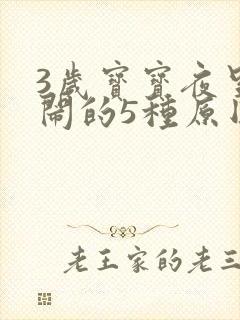 3歲寶寶夜
鬧的5種原
老王家的老三